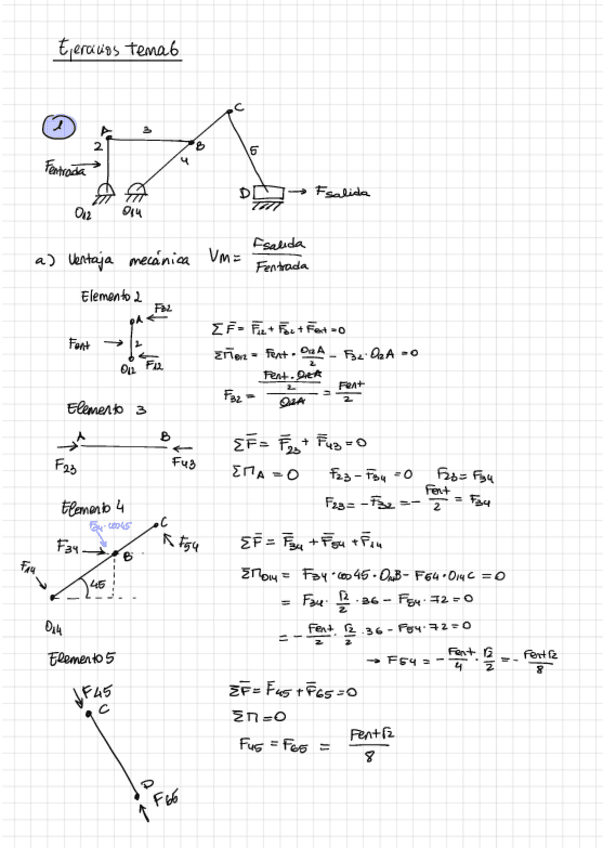 Ejercicios tema 6
1
C
A
3
2
B
4
5
Fentrada
D
Fsalida
O12
O14
a) Ventaja mecánica VM = Fsalida / Fentrada
Elemento 2
F32
A
Fent
2
O12 F12
ΣF̅ = F̅12 + F̅32 + F̅ent = 0
ΣM̅O12 = Fent · O12A/2 - F32 · O12A = 0
F32 = (Fent · O12A / 2) / O12A = Fent/2
Elemento 3
A B
F23 F43
ΣF̅ = F̅23 + F̅43 = 0
ΣMA = 0 F23 - F34 = 0 F23 = F34
F23 = -F32 = - Fent/2 = F34
Elemento 4
F34·cos45
C
F34
B
F54
F14
45
O14
ΣF̅ = F̅34 + F̅54 + F̅14
ΣMO14 = F34 · cos45 · O14B - F54 · O14C = 0
= F34 · √2/2 · 36 - F54 · 72 = 0
= - Fent/2 · √2/2 · 36 - F54 · 72 = 0
→ F54 = - Fent/4 · √2/2 = - Fent√2/8
Elemento 5
F45
C
D
F65
ΣF̅ = F̅45 + F̅65 = 0
ΣM = 0
F45 = F65 = Fent√2/8